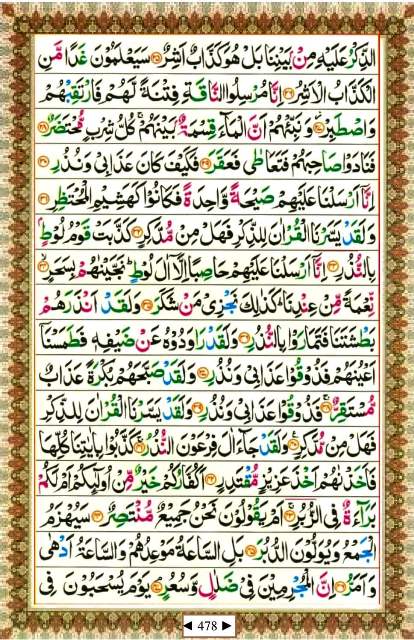 الذِّكْرُ عَلَيْهِ مِنْۢ بَيْنِنَا بَلْ هُوَ كَذَّابٌ اَشِرٌ ۝۲۵ سَيَعْلَمُوْنَ غَدًا مَّنِ
الْكَذَّابُ الْاَشِرُ ۝۲۶ اِنَّا مُرْسِلُوا النَّاقَةِ فِتْنَةً لَّهُمْ فَارْتَقِبْهُمْ
وَاصْطَبِرْ ۝۲۷ وَنَبِّئْهُمْ اَنَّ الْمَآءَ قِسْمَةٌۢ بَيْنَهُمْ ۚ كُلُّ شِرْبٍ مُّحْتَضَرٌ ۝۲۸
فَنَادَوْا صَاحِبَهُمْ فَتَعَاطٰى فَعَقَرَ ۝۲۹ فَكَيْفَ كَانَ عَذَابِيْ وَنُذُرِ ۝۳۰
اِنَّآ اَرْسَلْنَا عَلَيْهِمْ صَيْحَةً وَّاحِدَةً فَكَانُوْا كَهَشِيْمِ الْمُحْتَظِرِ ۝۳۱
وَلَقَدْ يَسَّرْنَا الْقُرْاٰنَ لِلذِّكْرِ فَهَلْ مِنْ مُّدَّكِرٍ ۝۳۲ كَذَّبَتْ قَوْمُ لُوْطٍۭ
بِالنُّذُرِ ۝۳۳ اِنَّآ اَرْسَلْنَا عَلَيْهِمْ حَاصِبًا اِلَّآ اٰلَ لُوْطٍ ؕ نَجَّيْنٰهُمْ بِسَحَرٍ ۝۳۴
نِّعْمَةً مِّنْ عِنْدِنَا ؕ كَذٰلِكَ نَجْزِيْ مَنْ شَكَرَ ۝۳۵ وَلَقَدْ اَنْذَرَهُمْ
بَطْشَتَنَا فَتَمَارَوْا بِالنُّذُرِ ۝۳۶ وَلَقَدْ رَاوَدُوْهُ عَنْ ضَيْفِهٖ فَطَمَسْنَآ
اَعْيُنَهُمْ فَذُوْقُوْا عَذَابِيْ وَنُذُرِ ۝۳۷ وَلَقَدْ صَبَّحَهُمْ بُكْرَةً عَذَابٌ
مُّسْتَقِرٌّ ۝۳۸ فَذُوْقُوْا عَذَابِيْ وَنُذُرِ ۝۳۹ وَلَقَدْ يَسَّرْنَا الْقُرْاٰنَ لِلذِّكْرِ
فَهَلْ مِنْ مُّدَّكِرٍ ۝۴۰ وَلَقَدْ جَآءَ اٰلَ فِرْعَوْنَ النُّذُرُ ۝۴۱ كَذَّبُوْا بِاٰيٰتِنَا كُلِّهَا
فَاَخَذْنٰهُمْ اَخْذَ عَزِيْزٍ مُّقْتَدِرٍ ۝۴۲ اَكُفَّارُكُمْ خَيْرٌ مِّنْ اُولٰٓئِكُمْ اَمْ لَكُمْ
بَرَآءَةٌ فِي الزُّبُرِ ۝۴۳ اَمْ يَقُوْلُوْنَ نَحْنُ جَمِيْعٌ مُّنْتَصِرٌ ۝۴۴ سَيُهْزَمُ
الْجَمْعُ وَيُوَلُّوْنَ الدُّبُرَ ۝۴۵ بَلِ السَّاعَةُ مَوْعِدُهُمْ وَالسَّاعَةُ اَدْهٰى
وَاَمَرُّ ۝۴۶ اِنَّ الْمُجْرِمِيْنَ فِيْ ضَلٰلٍ وَّسُعُرٍ ۝۴۷ يَوْمَ يُسْحَبُوْنَ فِي
◄ 478 ►